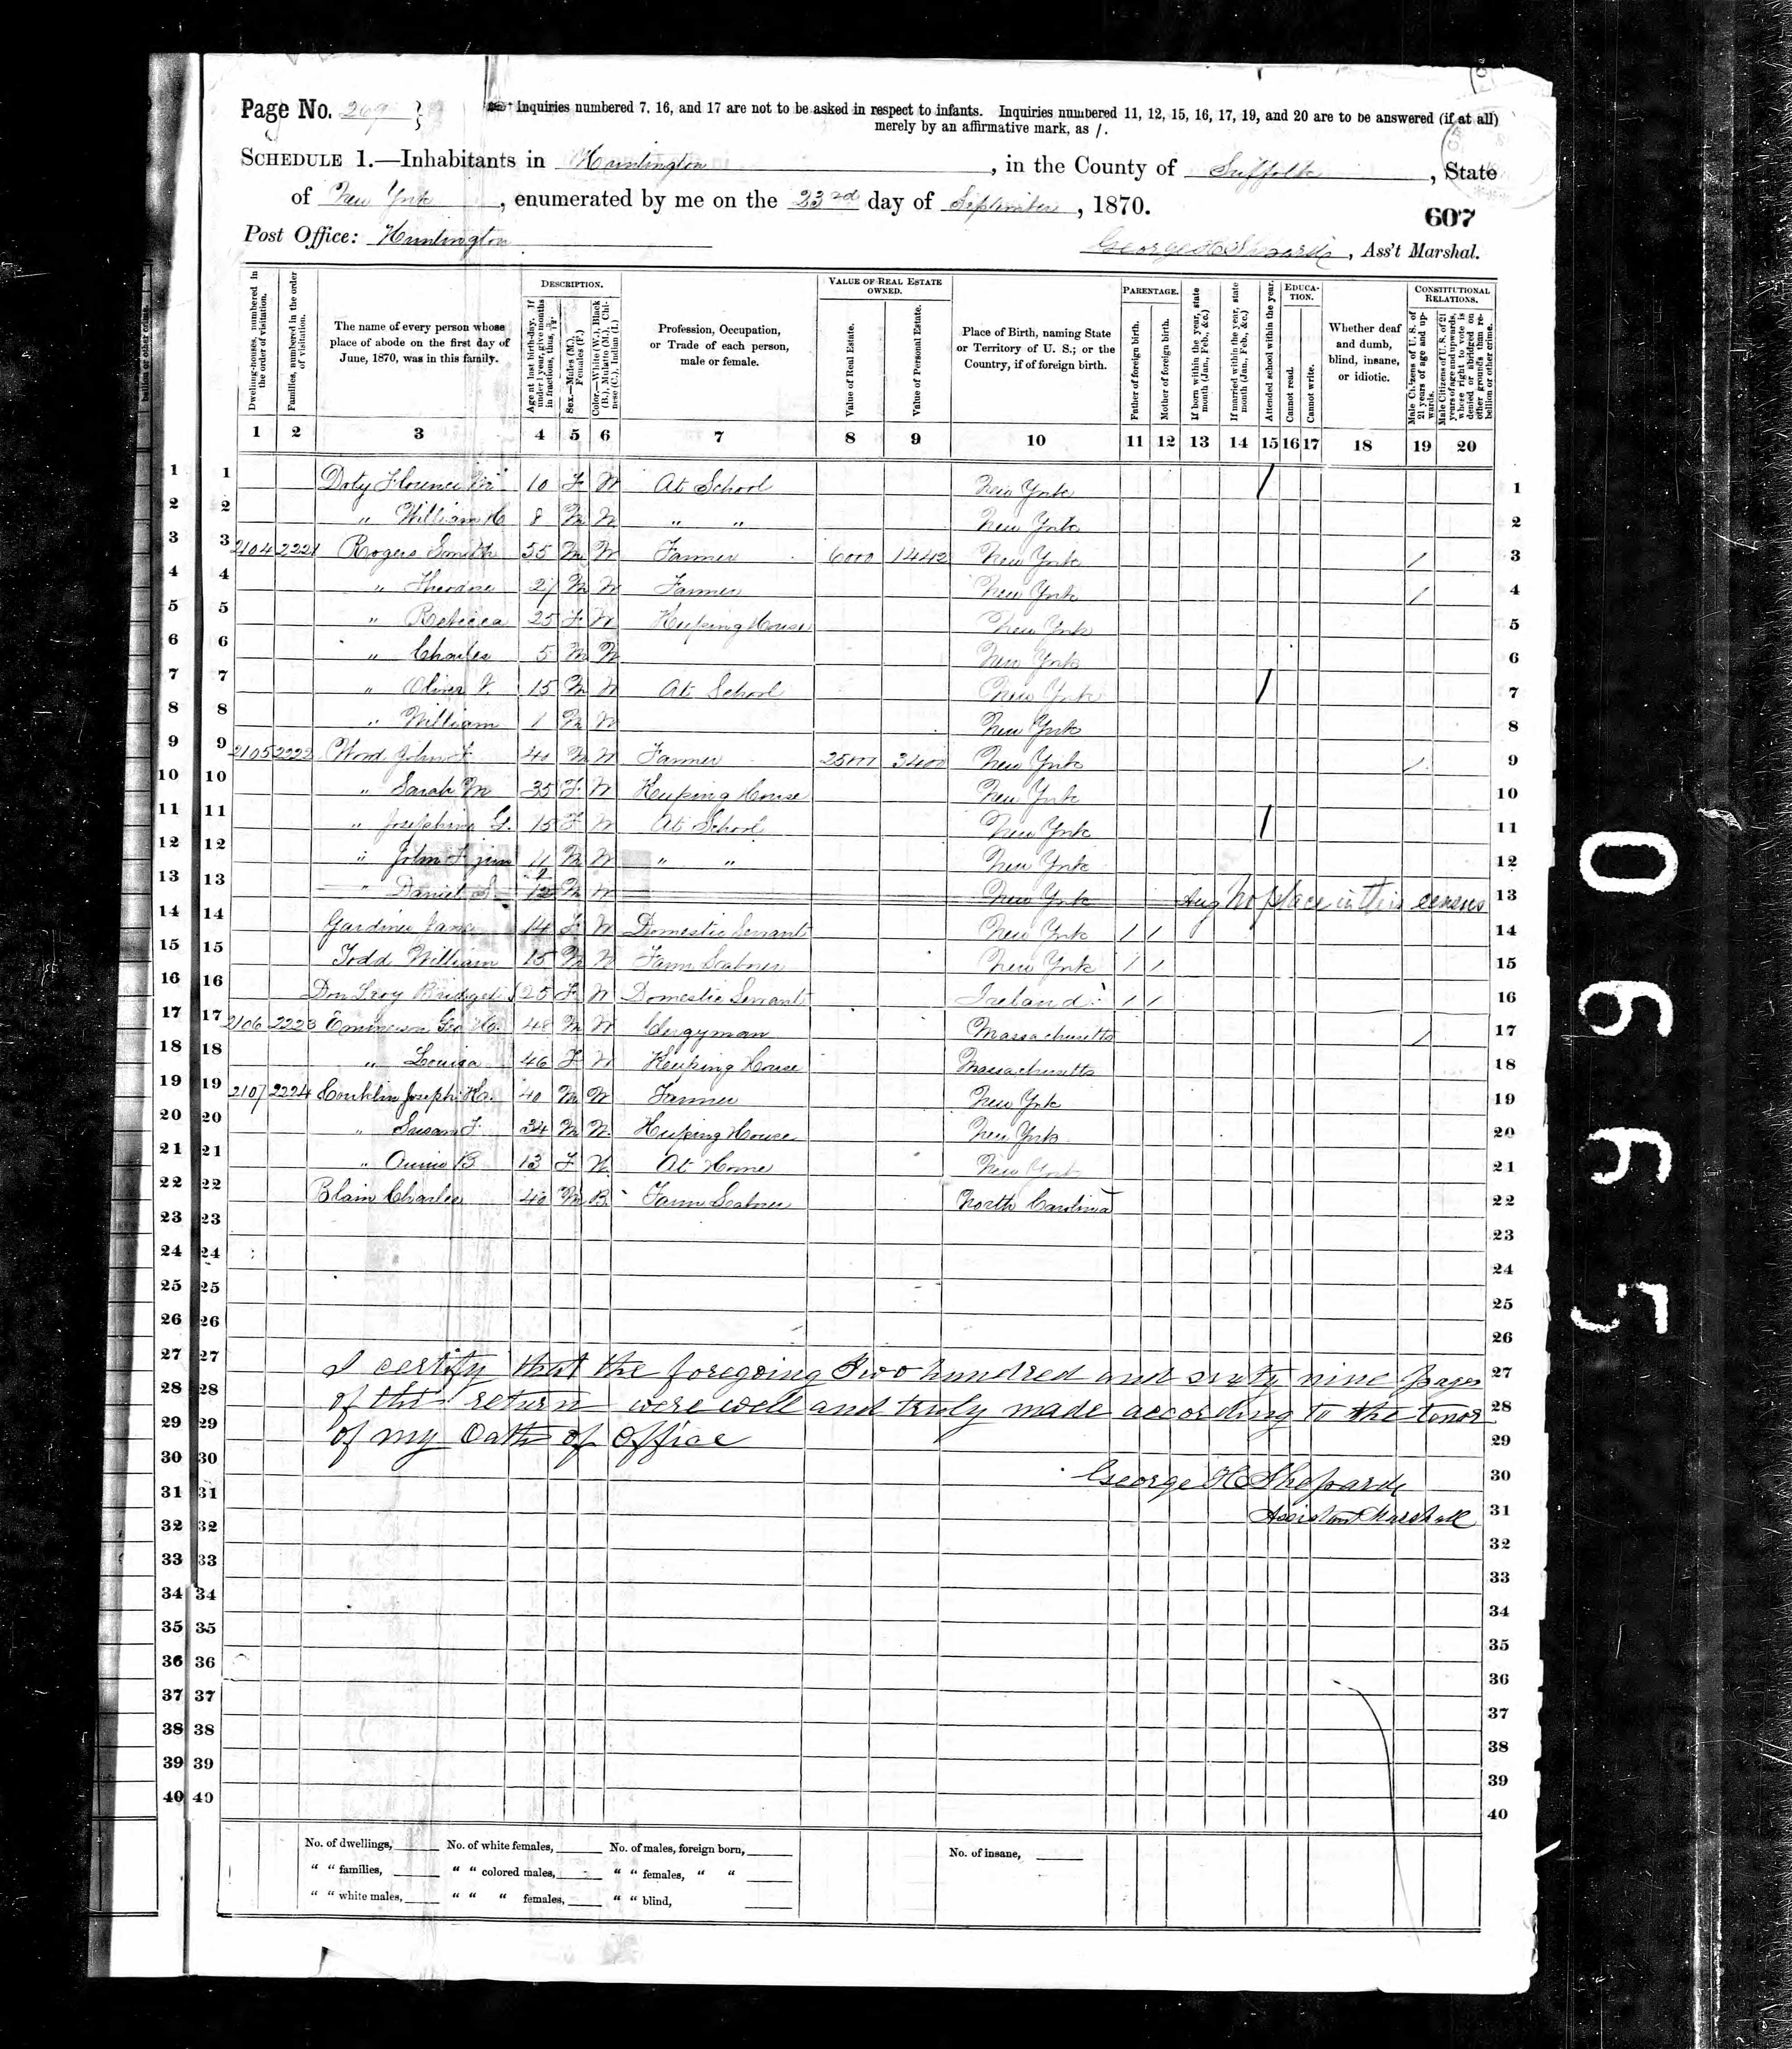 Page No. 269
Inquiries numbered 7, 16, and 17 are not to be asked in respect to infants. Inquiries numbered 11, 12, 15, 16, 17, 19, and 20 are to be answered (if at all)
merely by an affirmative mark, as /.
SCHEDULE 1.—Inhabitants in Huntington, in the County of Suffolk, State
of New York, enumerated by me on the 23rd day of September, 1870.
607
Post Office: Huntington
George H Shepard, Ass't Marshal.
Dwelling-houses, numbered in the order of visitation.
Families, numbered in the order of visitation.
The name of every person whose place of abode on the first day of June, 1870, was in this family.
DESCRIPTION.
Age at last birth-day. If under 1 year, give months in fractions, thus, 3/12.
Sex.—Males (M.), Females (F.)
Color.—White (W.), Black (B.), Mulatto (M.), Chinese (C.), Indian (I.)
Profession, Occupation, or Trade of each person, male or female.
VALUE OF REAL ESTATE OWNED.
Value of Real Estate.
Value of Personal Estate.
Place of Birth, naming State or Territory of U. S.; or the Country, if of foreign birth.
PARENTAGE.
Father of foreign birth.
Mother of foreign birth.
If born within the year, state month (Jan., Feb., &c.)
If married within the year, state month (Jan., Feb., &c.)
Attended school within the year.
EDUCATION.
Cannot read.
Cannot write.
Whether deaf and dumb, blind, insane, or idiotic.
CONSTITUTIONAL RELATIONS.
Male Citizens of U. S. of 21 years of age and upwards.
Male Citizens of U. S. of 21 years of age and upwards, whose right to vote is denied or abridged on other grounds than rebellion or other crime.
1 2 3 4 5 6 7 8 9 10 11 12 13 14 15 16 17 18 19 20
1 1 Doty Florence 10 F W At School New York / 1
2 2 " William H 8 M W " " New York 2
3 3 2104 2221 Rogers Smith 55 M W Farmer 6000 1442 New York / 3
4 4 " Theodore 27 M W Farmer New York / 4
5 5 " Rebecca 25 F W Keeping House New York 5
6 6 " Charles 5 M W New York 6
7 7 " Oliver 15 M W At School New York / 7
8 8 " William 1 M W New York 8
9 9 2105 2222 Wood John F 40 M W Farmer 25000 3400 New York / 9
10 10 " Sarah M 35 F W Keeping House New York 10
11 11 " Josephine G. 15 F W At School New York / 11
12 12 " John F jun 11 M W " " New York 12
13 13 " Daniel S 12 M W New York Aug No place in this census 13
14 14 Gardiner Jane 14 F W Domestic Servant New York / / 14
15 15 Todd William 15 M W Farm Laborer New York / / 15
16 16 Bridget 25 F W Domestic Servant Ireland / / 16
17 17 2106 2223 Emmerson Geo H. 48 M W Clergyman Massachusetts / 17
18 18 " Louisa 46 F W Keeping House Massachusetts 18
19 19 2107 2224 Conklin Joseph H. 40 M W Farmer New York 19
20 20 " Susan F. 34 M W Keeping House New York 20
21 21 " Annie B 13 F W At Home New York 21
22 22 Blain Charles 40 M B Farm Laborer North Carolina 22
23 23 23
24 24 24
25 25 25
26 26 26
27 27 I certify that the foregoing Two hundred and sixty nine pages 27
28 28 of this return were well and truly made according to the tenor 28
29 29 of my Oath of Office 29
30 30 George H Shepard 30
31 31 Assistant Marshall 31
32 32 32
33 33 33
34 34 34
35 35 35
36 36 36
37 37 37
38 38 38
39 39 39
40 40 40
No. of dwellings, No. of white females, No. of males, foreign born, No. of insane,
" " families, " " colored males, " " females, " "
" " white males, " " " females, " " blind,
09995